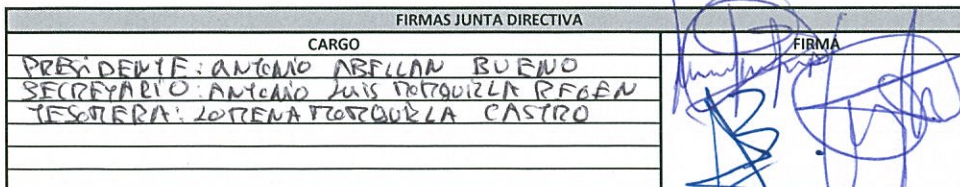 FIRMAS JUNTA DIRECTIVA
CARGO FIRMA
PRESIDENTE: ANTONIO ABELLAN BUENO
SECRETARIO: ANTONIO LUIS MORQUILLA
TESORERA: LORENA MORQUILLA CASTRO